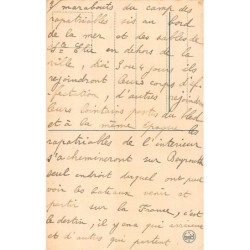 y marabouts du camp des
rapatriables sis au bord
de la mer et des sables de
Ste Elie en dehors de la
ville, d'ici 3 ou 4 jours ils
rejoindront leurs corps d'af
fectation, d'autres
leurs lointains postes du bled
et à la même époque les
rapatriables de l'intérieur
s'achemineront sur Beyrouth
seul endroit duquel ont peut
voir les bateaux venir et
partir sur la France, c'est
le destin, il y en a qui arrivent
et d'autres qui partent